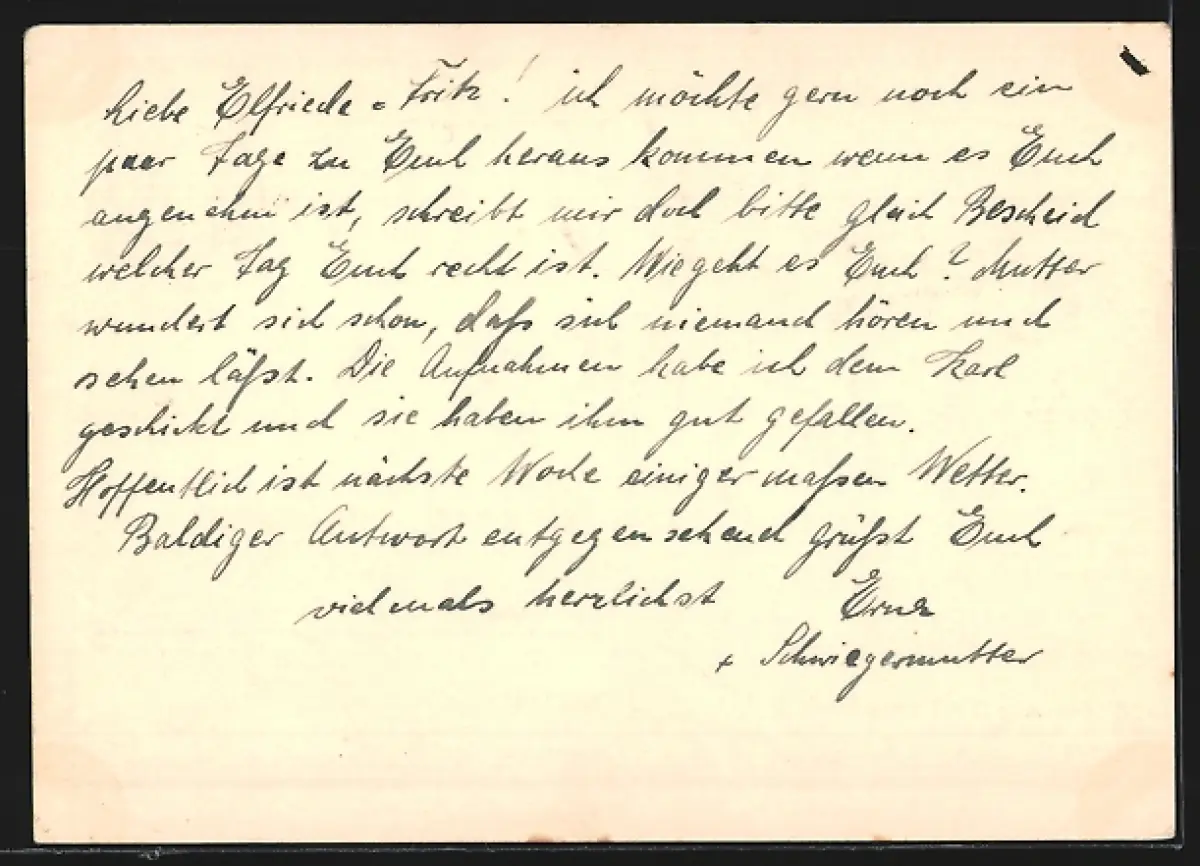 Liebe Elfriede u Fritz! ich möchte gern noch ein
paar Tage zu Euch heraus kommen wenn es Euch
angenehm ist, schreibt mir doch bitte gleich Bescheid
welcher Tag Euch recht ist. Wie geht es Euch? Mutter
wundert sich schon, daß sich niemand hören und
sehen läßt. Die Aufnahmen habe ich dem Karl
geschickt und sie haben ihm gut gefallen.
Hoffentlich ist nächste Woche einigermaßen Wetter.
Baldiger Antwort entgegensehend grüßt Euch
vielmals herzlichst Erna
+ Schwiegermutter